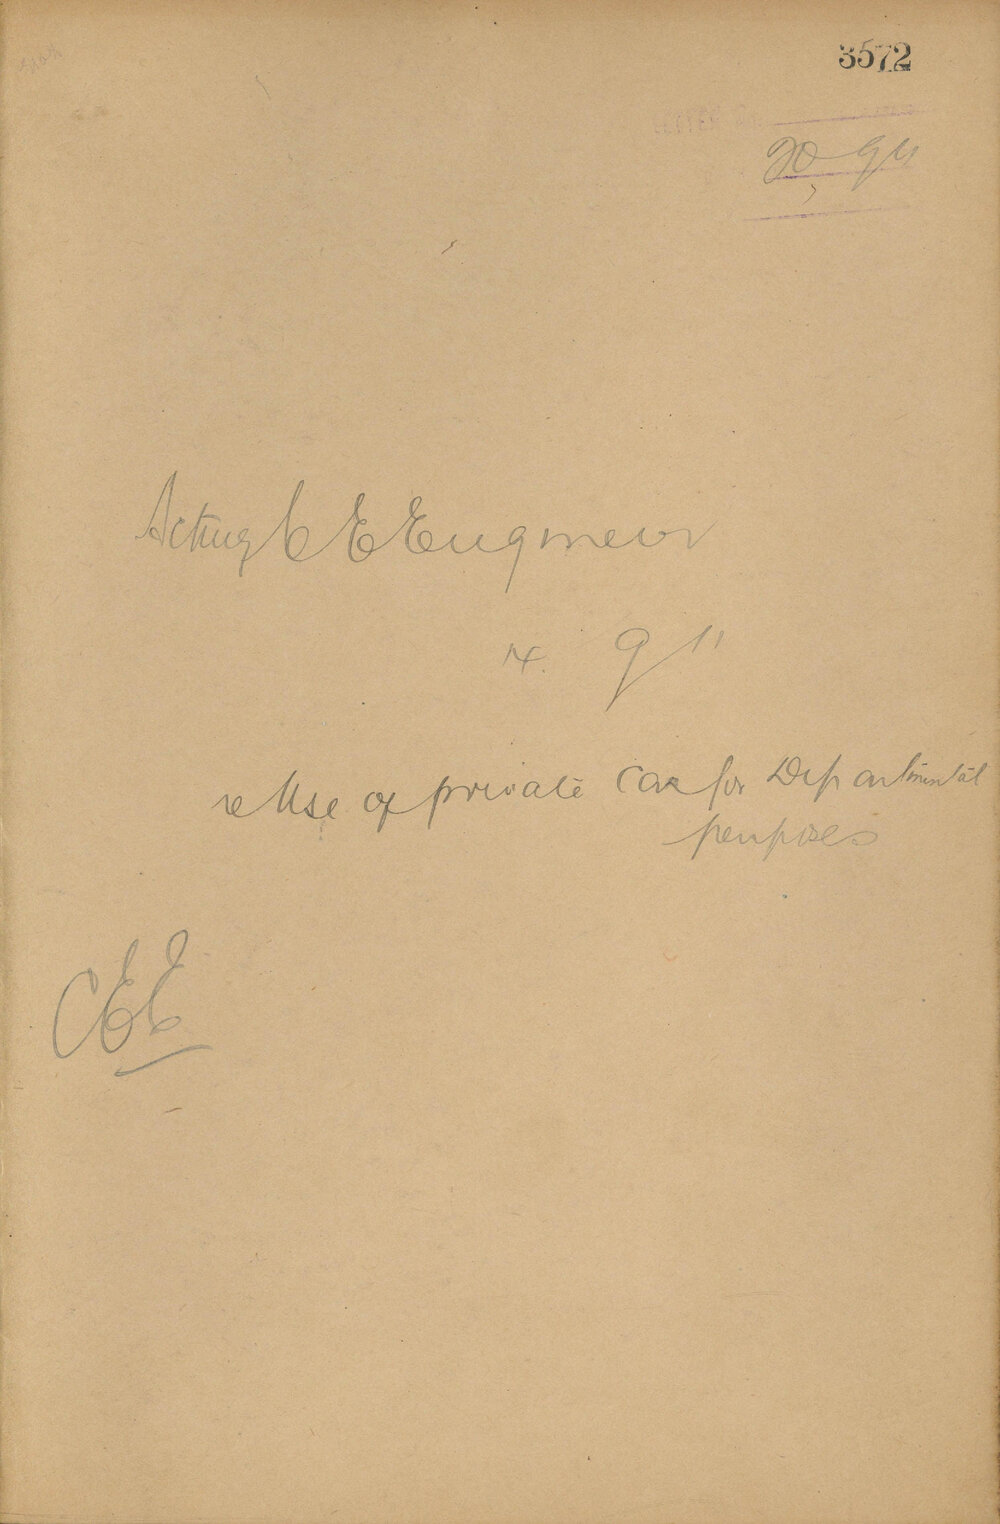 3572
20 9 11
Acting C E Engineer
14. 9 11
re Use of private Car for Departmental
purposes
C E E